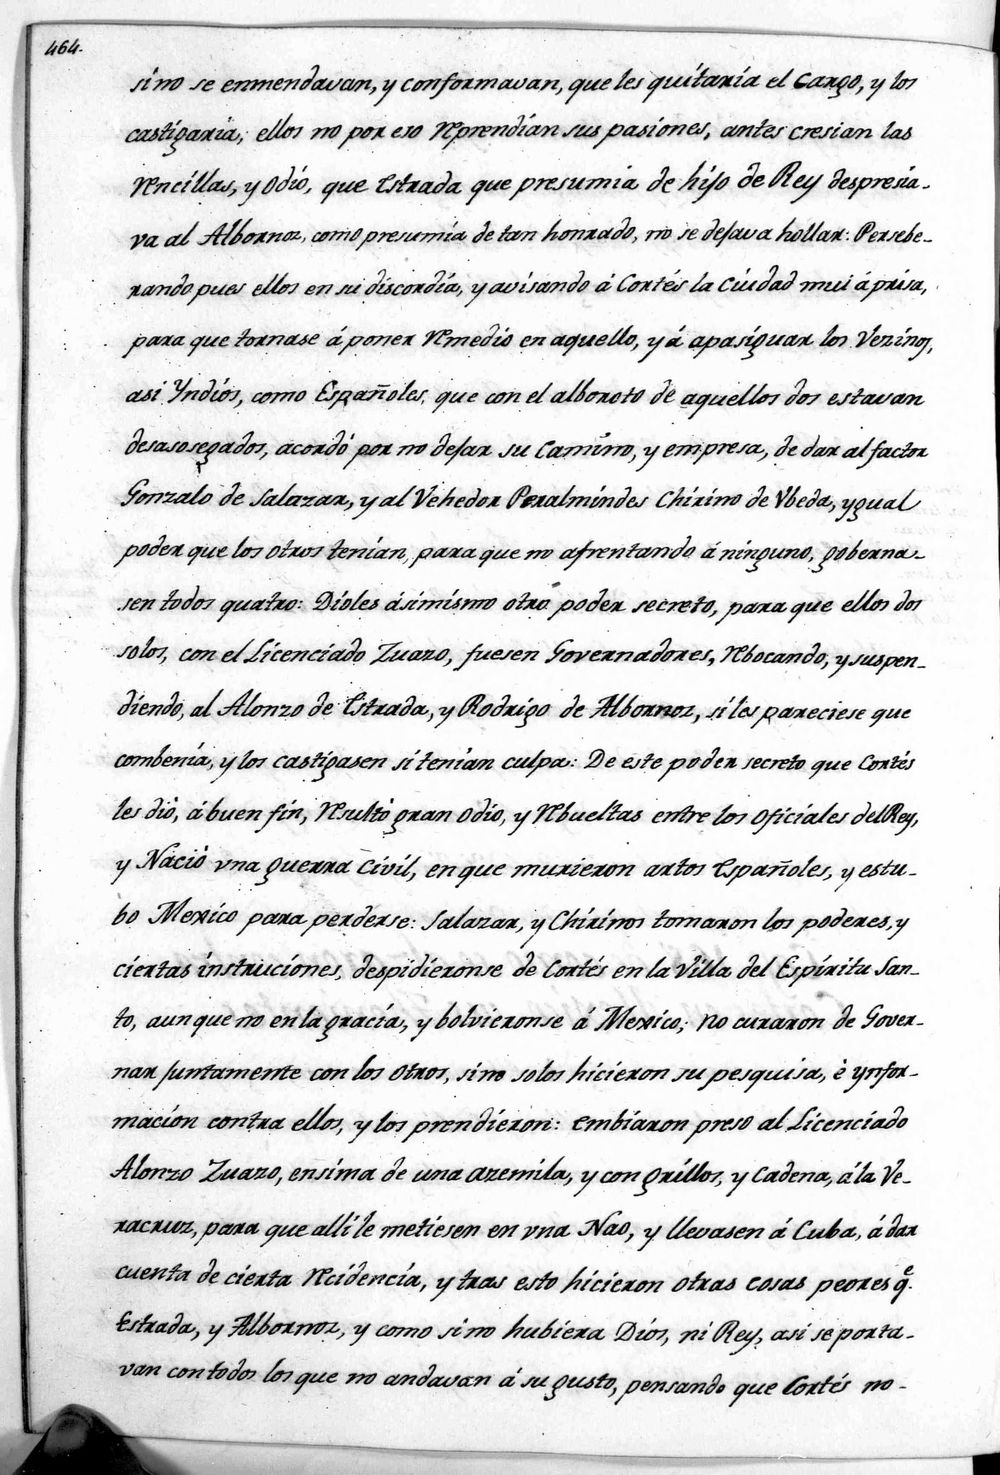 464.
sino se enmendavan, y conformavan, que les quitaria el Cargo, y los
castigaria; ellos no por eso Reprendian sus pasiones, antes cresian las
Rencillas, y Odio, que Estrada que presumia de hijo de Rey despresia-
va al Albornoz, como presumia de tan honrado, no se dejava hollar: Persebe-
rando pues ellos en su discordia, y avisando á Cortés la Ciudad mui á prisa,
para que tornase á poner Remedio en aquello, y á apasiguar los Vezinos,
asi Yndios, como Españoles, que con el alboroto de aquellos dos estavan
desasosegados, acordó por no dejar su Camino, y empresa, de dar al factor
Gonzalo de Salazar, y al Vehedor Peralmindes Chirino de Vbeda, ygual
poder que los otros tenian, para que no afrentando á ninguno, goberna-
sen todos quatro: Dioles ásimismo otro poder secreto, para que ellos dos
solos, con el Licenciado Zuazo, fuesen Governadores, Rebocando, y suspen-
diendo, al Alonzo de Estrada, y Rodrigo de Albornoz, si les pareciese que
combenia, y los castigasen si tenian culpa: De este poder secreto que Cortés
les dió, á buen fin, Resultó gran odio, y Rebueltas entre los Oficiales del Rey,
y Nació vna guerra Civil, en que murieron artos Españoles, y estu-
bo Mexico para perderse: Salazar, y Chirinos tomaron los poderes, y
ciertas instruciones, despidieronse de Cortés en la Villa del Espiritu San-
to, aunque no en la gracia, y bolvieronse á Mexico; no curaron de Gover-
nar juntamente con los otros, sino solos hicieron su pesquisa, è ynfor-
macion contra ellos, y los prendieron: embiaron preso al Licenciado
Alonzo Zuazo, ensima de una azemila, y con grillos, y Cadena, á la Ve-
racruz, para que alli le metiesen en vna Nao, y llevasen á Cuba, á dar
cuenta de cierta Recidencia, y tras esto hicieron otras cosas peores q.e
Estrada, y Albornoz, y como sino hubiera Dios, ni Rey, asi se porta-
van con todos los que no andavan á su gusto, pensando que Cortés no-